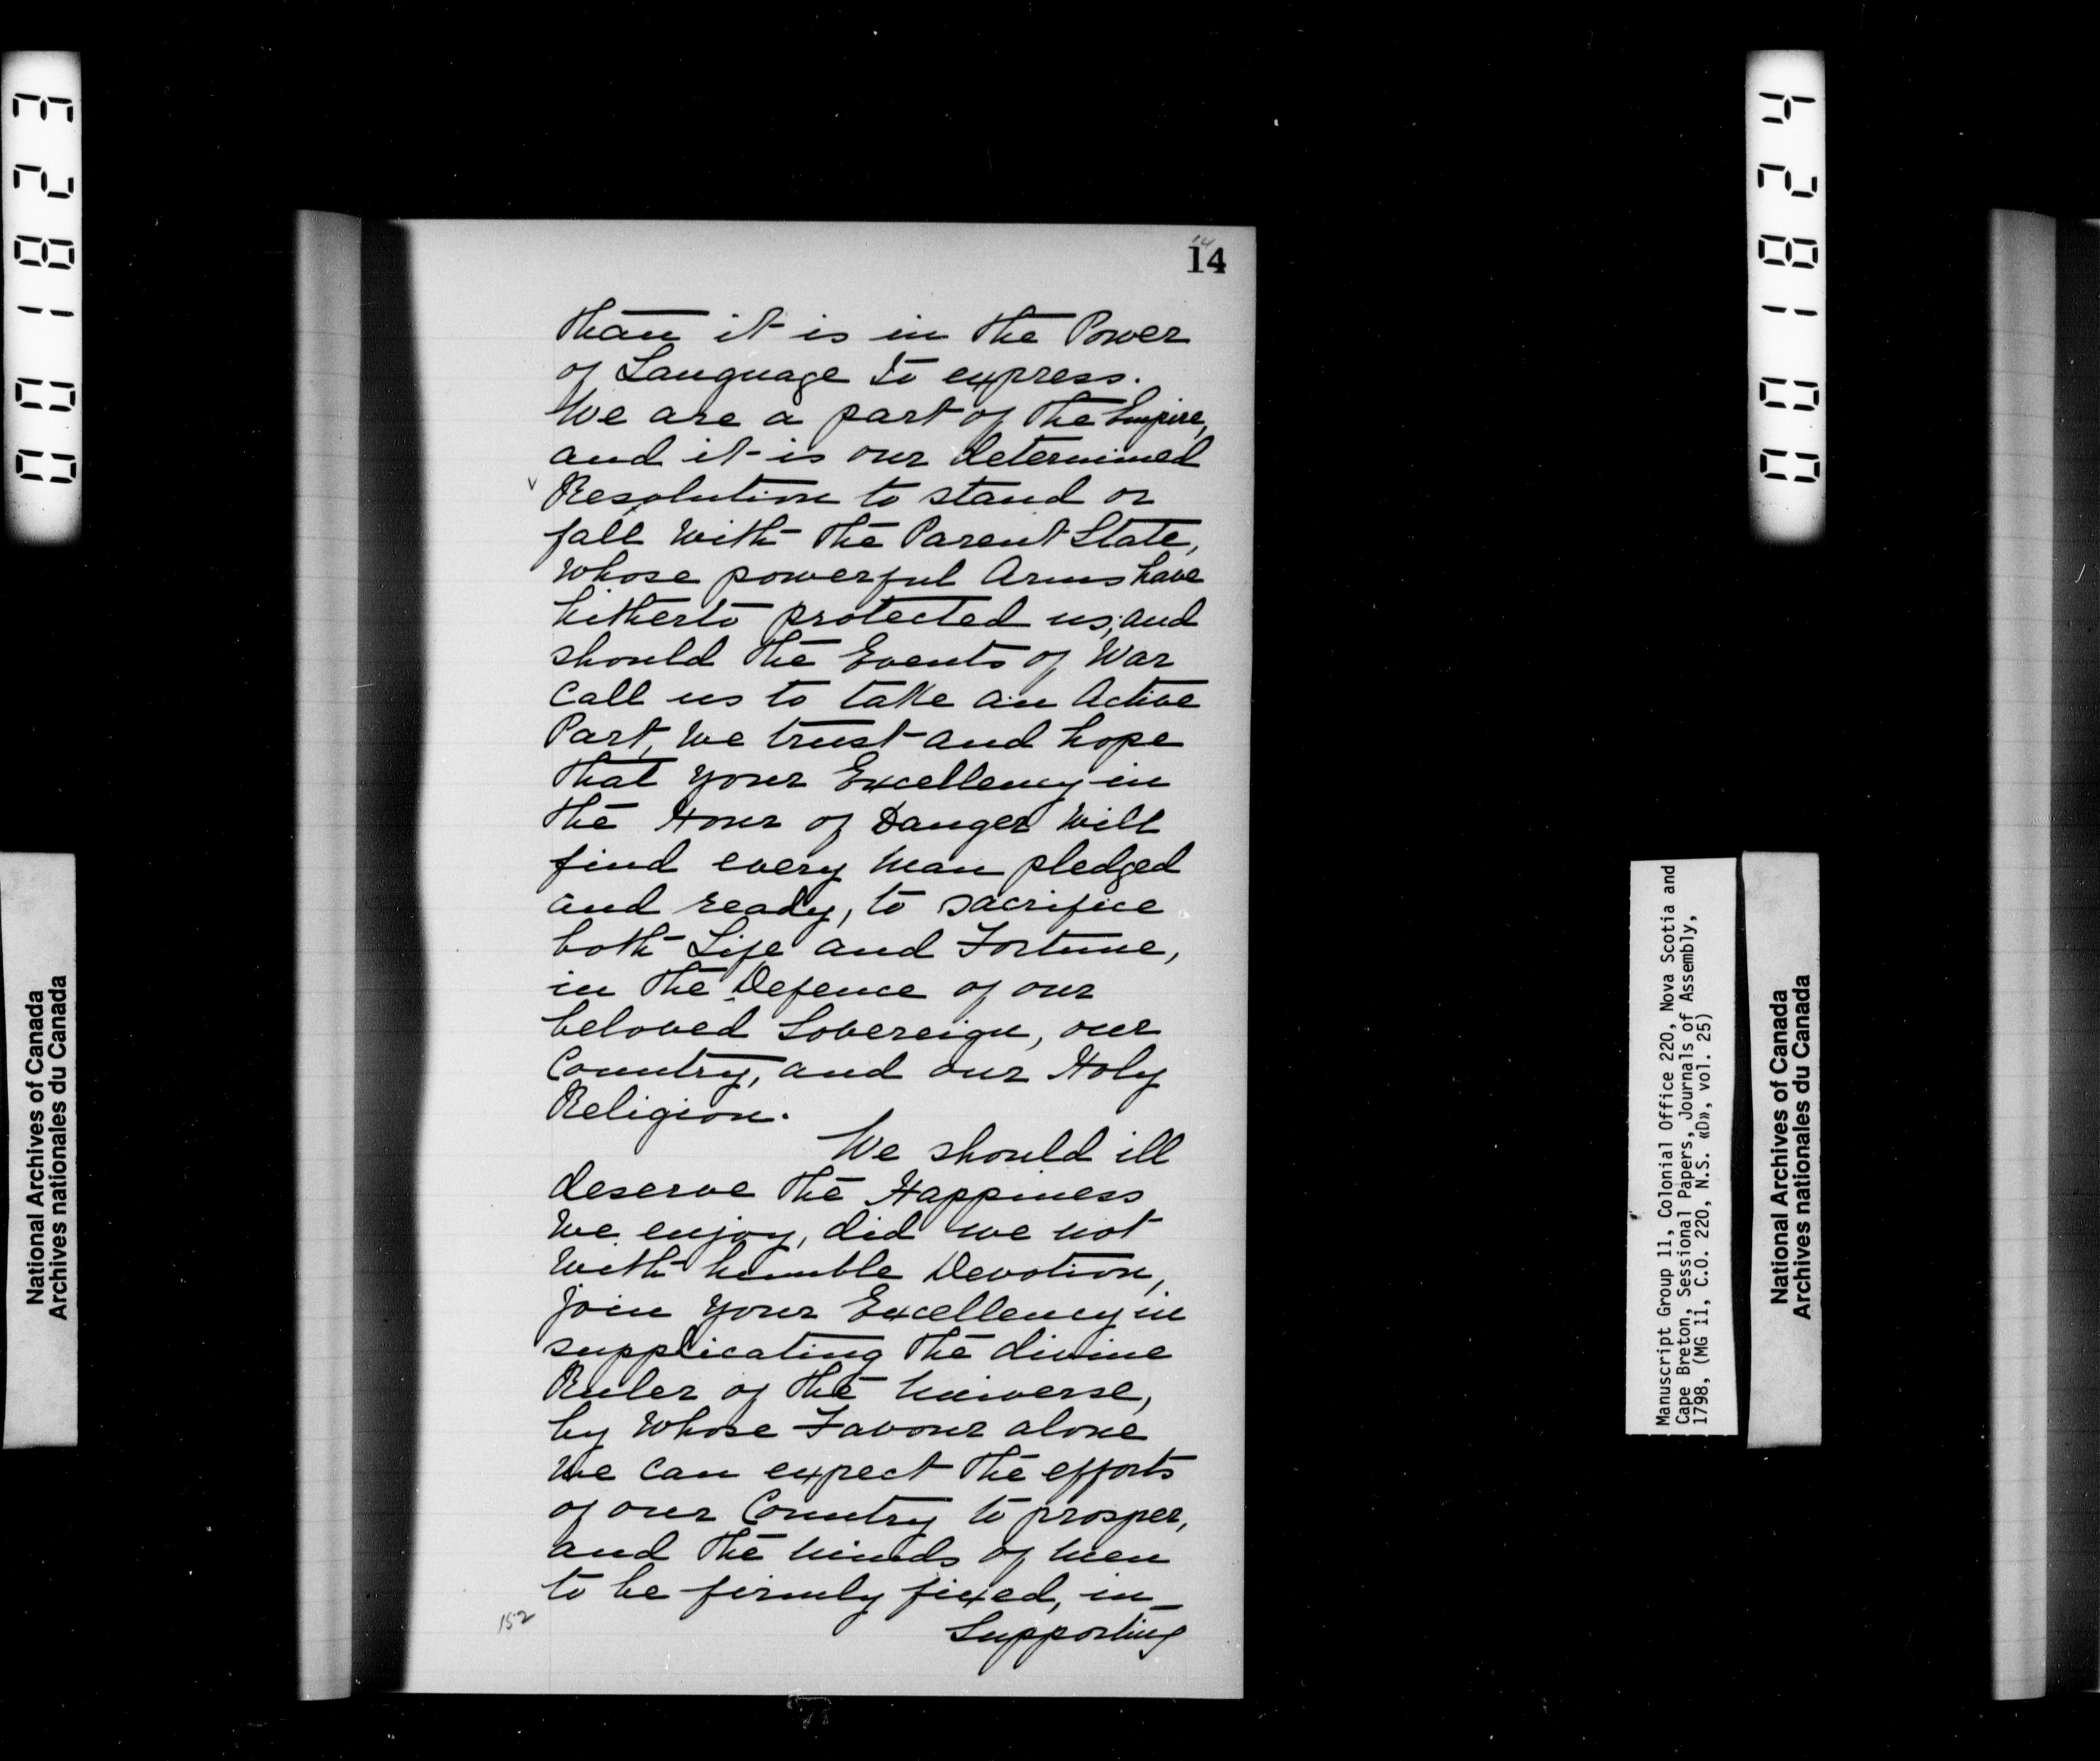 001823
National Archives of Canada
Archives nationales du Canada
14
14
than it is in the Power
of Language to express.
We are a part of the Empire,
and it is our determined
Resolution to stand or
fall with the Parent State,
whose powerful Arms have
hitherto protected us; and
should the Events of War
call us to take an Active
Part, we trust and hope
that your Excellency in
the Hour of Danger will
find every man pledged
and ready, to sacrifice
both Life and Fortune,
in the Defence of our
beloved Sovereign, our
Country, and our Holy
Religion.
We should ill
deserve the Happiness
we enjoy, did we not
with humble Devotion,
join your Excellency in
supplicating the divine
Ruler of the Universe,
by whose Favour alone
we can expect the efforts
of our Country to prosper,
and the minds of men
to be firmly fixed, in
Supporting
152
001824
Manuscript Group 11, Colonial Office 220, Nova Scotia and
Cape Breton, Sessional Papers, Journals of Assembly,
1798, (MG 11, C.O. 220, N.S. «D», vol. 25)
National Archives of Canada
Archives nationales du Canada